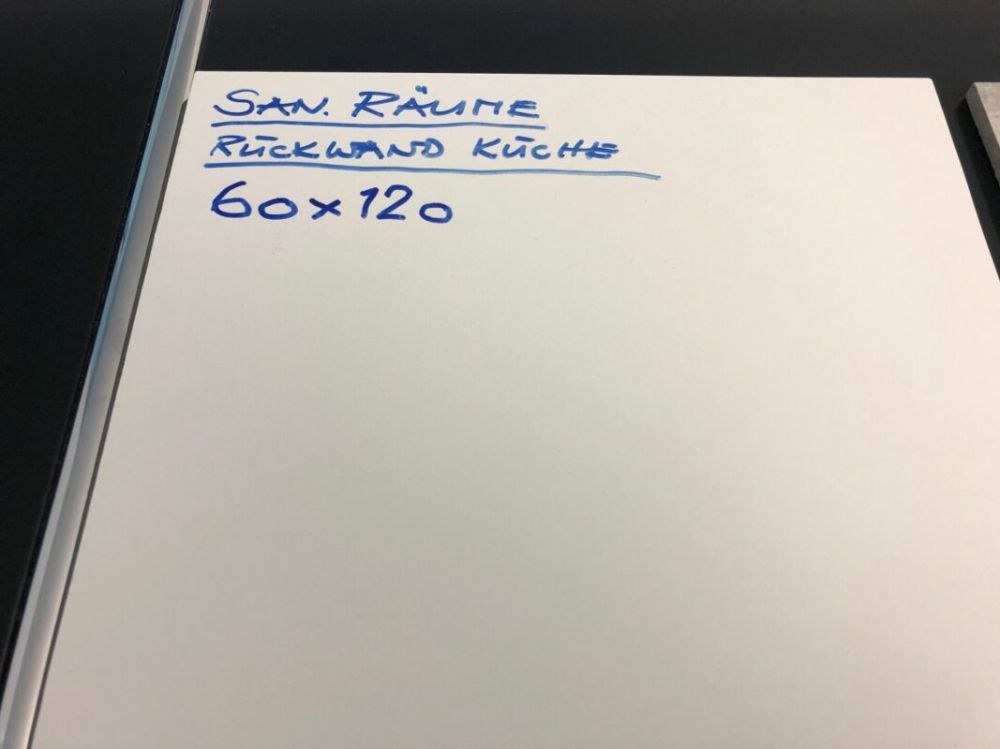 SAN. RÄUME
RÜCKWAND KÜCHE
60x120